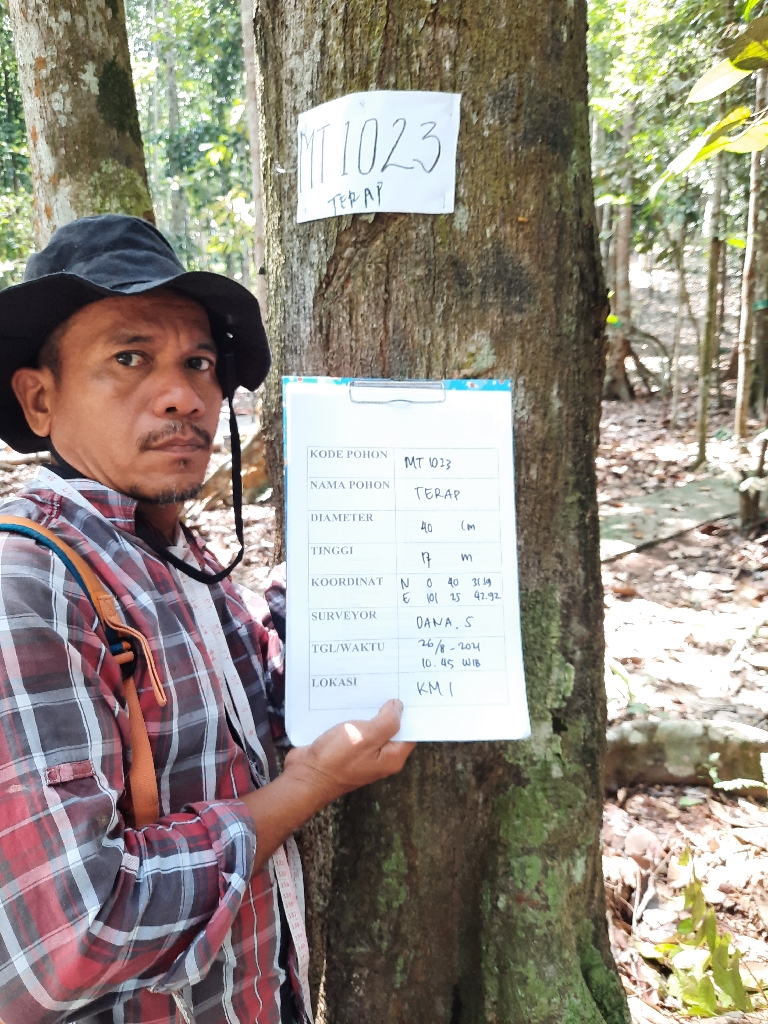 MT 1023
TERAP
KODE POHON MT 1023
NAMA POHON TERAP
DIAMETER 40 Cm
TINGGI 17 m
KOORDINAT N 0 40 31.19
E 101 25 42.92
SURVEYOR DANA. S
TGL/WAKTU 26/8-2021
10.45 WIB
LOKASI KM 1